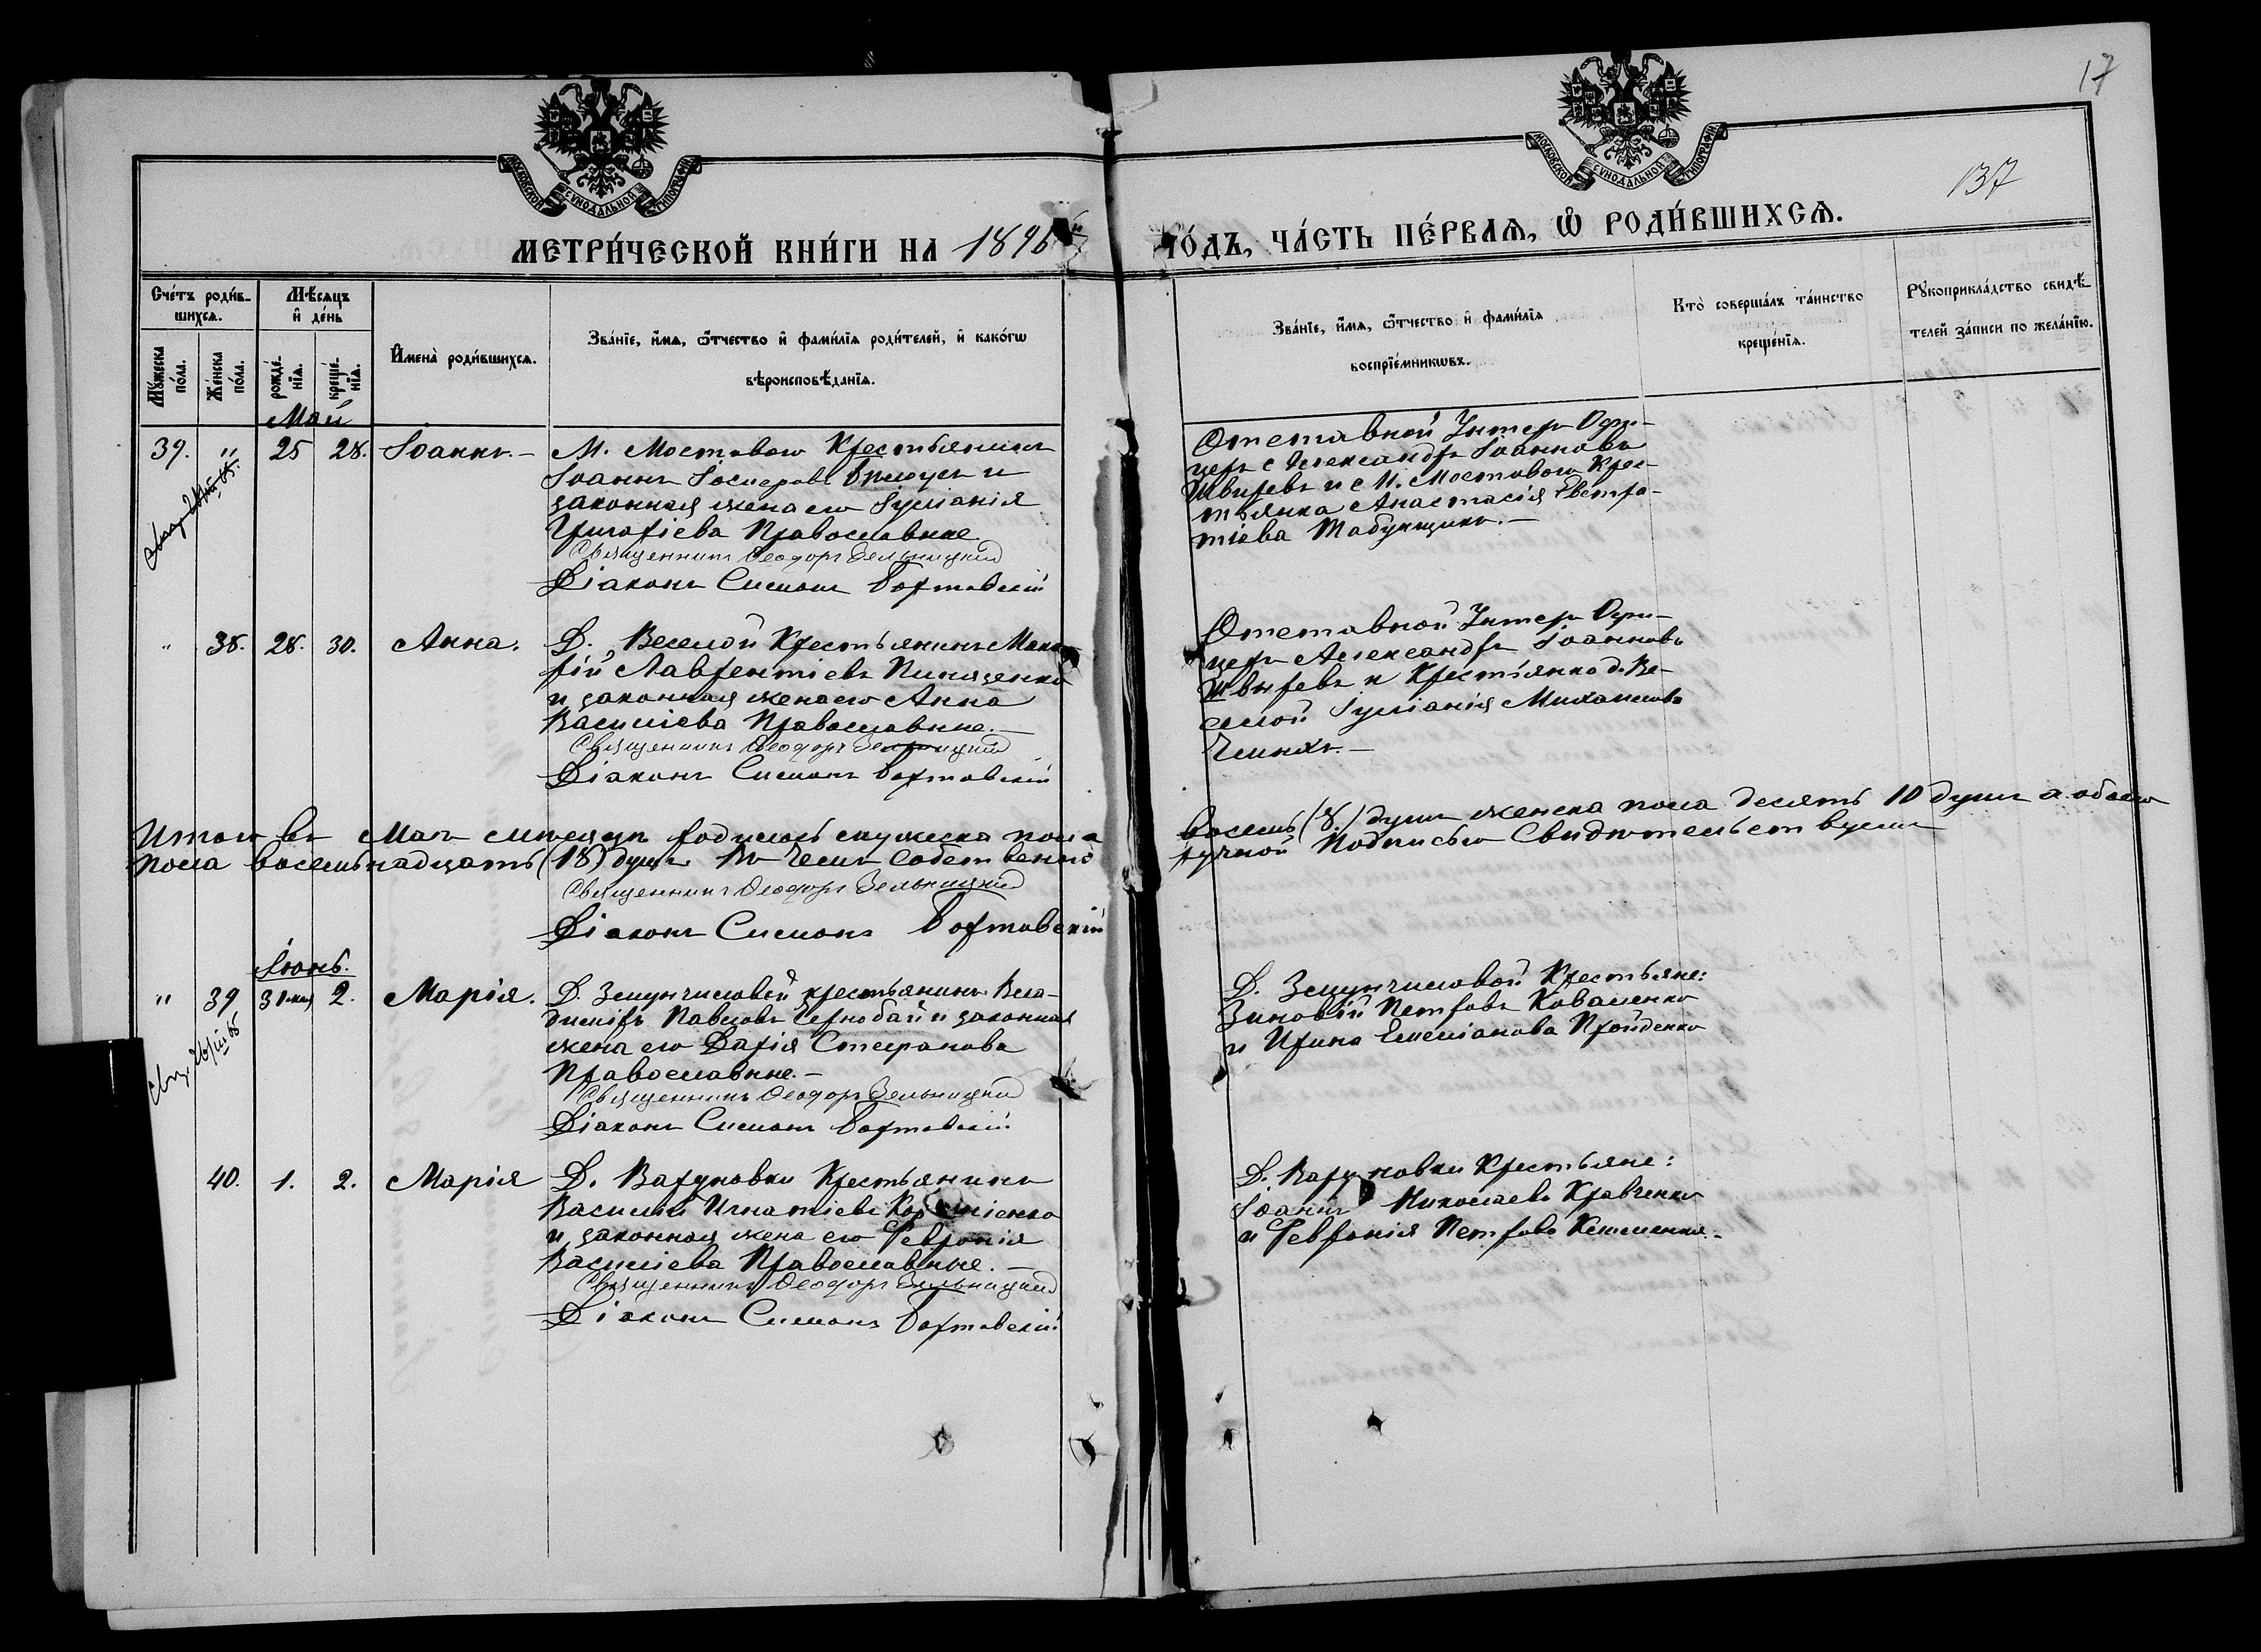 17
137
МОСКОВСКОЙ СѴНОДАЛЬНОЙ ТИПОГРАФІИ
МОСКОВСКОЙ СѴНОДАЛЬНОЙ ТИПОГРАФІИ
МЕТРИ́ЧЕСКОЙ КНИ́ГИ НА 1896 й
ГО́ДЪ, ЧА́СТЬ ПЕ́РВАЯ, Ѡ РОДИ́ВШИХСЯ.
Сче́тъ роди́в-
шихся.
Мѣ́сяцъ
и҆ де́нь
Му́жеска по́ла.
Же́нска по́ла.
рожде́нїя.
креще́нїя.
И҆мена̀ роди́вшихся.
Зва́нїе, и҆́мя, ѻ҆́тчество и҆ фами́лїя роди́телей, и҆ како́гѡ
вѣроисповѣ́данїя.
Зва́нїе, и҆́мя, ѻ҆́тчество и҆ фами́лїя
воспрїе́мникѡвъ.
Кто̀ соверша́лъ та́инство
креще́нїя.
Рукоприкла́дство свидѣ́-
телей за́писи по жела́нїю.
Май
39. " 25 28. Іоаннъ. – М. Мостоваго Крестьянинъ
Іоаннъ Іосифовъ и
законная жена его Іуліанія
Григоріева Православные
Священникъ Ѳеодоръ Зельницкій
Діаконъ Симонъ Бортовскій
Отставной Унтеръ Офи-
церъ Александръ Іоанновъ
Швыревъ и М. Мостоваго Крес-
тьянка Анастасія Евстра-
тіева Табунщикъ. –
" 38. 28. 30. Анна. Д. Веселой Крестьянинъ Мака-
рій Лаврентіевъ
и законная жена его Анна
Василіева Православные. –
Священникъ Ѳеодоръ Зельницкій
Діаконъ Симонъ Бортовскій
Отставной Унтеръ Офи-
церъ Александръ Іоанновъ
Швыревъ и Крестьянка д. Ве-
селой Іуліанія Михаилова
Чмихъ. –
Итого въ Маѣ мѣсяцѣ родилось мужеска пола
восемь (8.) душъ женска пола десять 10 душъ а обоего
пола восемьнадцать (18) душъ. Въ чемъ собственно
ручной подписью Свидѣтельствуемъ
Священникъ Ѳеодоръ Зельницкій
Діаконъ Симонъ Бортовскій
Іюнь.
" 39 31 мая 2. Марія. Д. крестьянинъ Вла-
диміръ Павловъ Чернобай и законная
жена его Дарія Стефанова
Православные. –
Священникъ Ѳеодоръ Зельницкій
Діаконъ Симонъ Бортовскій
Д. Крестьяне:
Зиновій Петровъ Коваленко
и Ирина Емеліанова Пройденко
40. 1. 2. Марія Д. Варуновки Крестьянинъ
Василій Игнатіевъ
и законная жена его Февронія
Василіева Православные. –
Священникъ Ѳеодоръ Зельницкій
Діаконъ Симонъ Бортовскій
Д. Варуновки Крестьяне:
Іоаннъ Николаевъ Кравченко
и Февронія Петрова